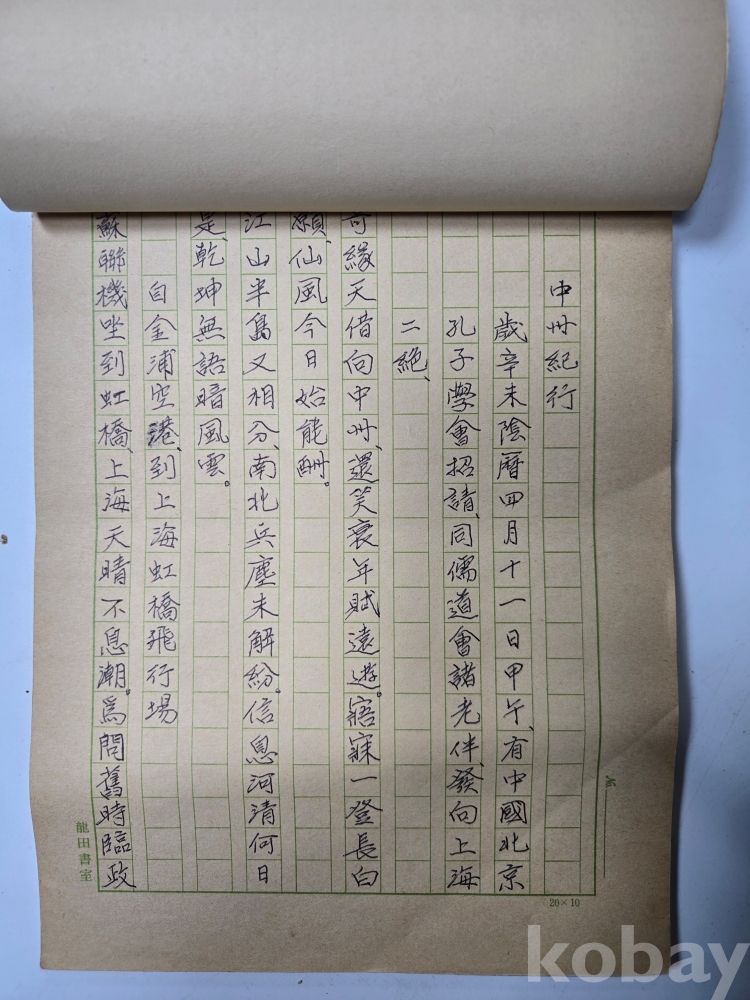 中州紀行
歲辛未陰曆四月十一日甲午、有中國北京
孔子學會招請、同儒道會諸老伴、發向上海
二絶、
奇緣天借向中州、還笑衰年賦遠遊。寤寐一登長白
願、仙風今日始能酬。
江山半島又相分、南北兵塵未解紛。信息河清何日
是、乾坤無語暗風雲。
自金浦空港、到上海虹橋飛行場
蘇聯機坐到虹橋、上海天晴不息潮。爲問舊時臨政
龍田書室
20×10
kobay